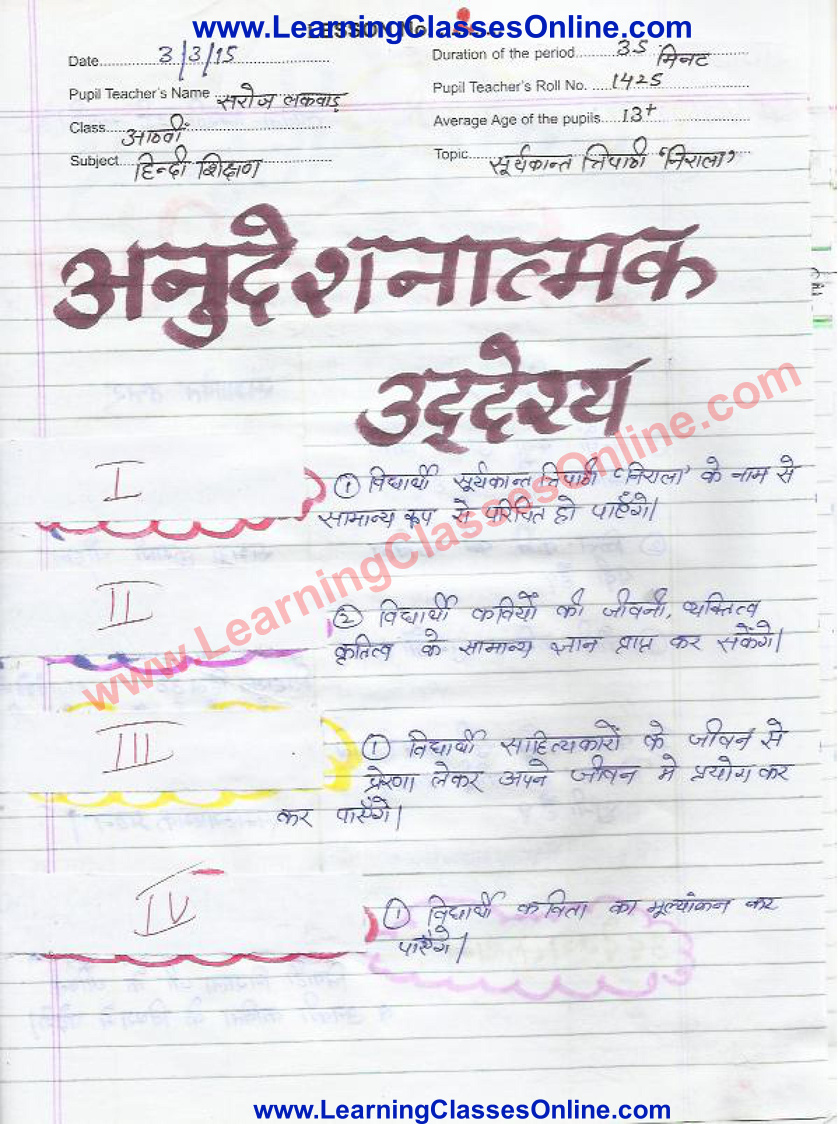 www.LearningClassesOnline.com
LESSON No.
Date 3/3/15 Duration of the period 35 मिनट
Pupil Teacher's Name सरोज लकवाड़ Pupil Teacher's Roll No. 1425
Class आठवीं Average Age of the pupils 13+
Subject हिन्दी शिक्षण Topic सूर्यकान्त त्रिपाठी 'निराला'
अनुदेशनात्मक
उद्देश्य
I ① विद्यार्थी सूर्यकान्त त्रिपाठी 'निराला' के नाम से
सामान्य रूप से परिचित हो पाएँगे।
II ② विद्यार्थी कवियों की जीवनी, व्यक्तित्व
कृतित्व के सामान्य ज्ञान प्राप्त कर सकेंगे।
III ① विद्यार्थी साहित्यकारों के जीवन से
प्रेरणा लेकर अपने जीवन मे प्रयोग कर
कर पाएँगे।
IV ① विद्यार्थी कविता का मूल्यांकन कर
पाएंगे।
www.LearningClassesOnline.com
www.LearningClassesOnline.com